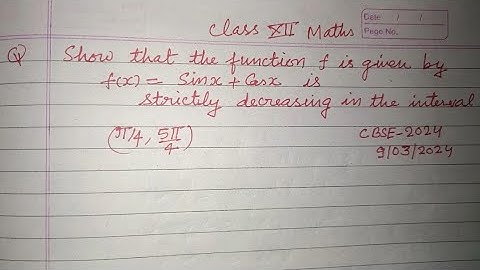 Class XII Maths
Date / /
Page No.
Q Show that the function f is given by
f(x) = Sinx + Cosx is
strictly decreasing in the interval
(π/4, 5π/4)
CBSE-2024
9/03/2024